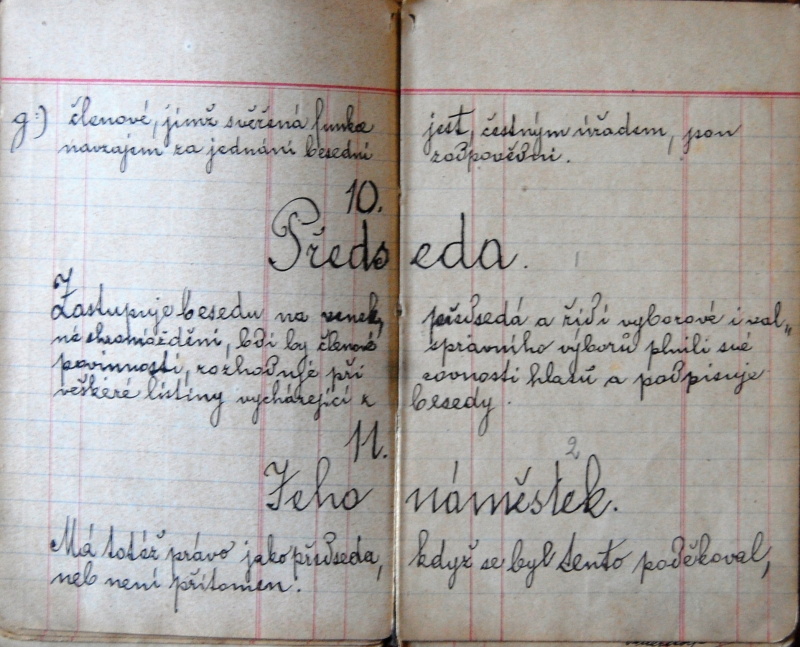 g:) členové, jimž svěřená funkce jest, čestným úřadem, jsou
navzájem za jednání besední zodpovědni.
10.
Předseda. 1
Zastupuje besedu na venek, předsedá a řídí výborové i val„
né shromáždění, bdí by členové správního výborů plnili své
povinnosti, rozhoduje při rovnosti hlasů a podpisuje
veškeré listiny vycházející z besedy.
11.
2
Jeho náměstek.
Má totéž právo jako předseda, když se byl tento poděkoval,
neb není přítomen.